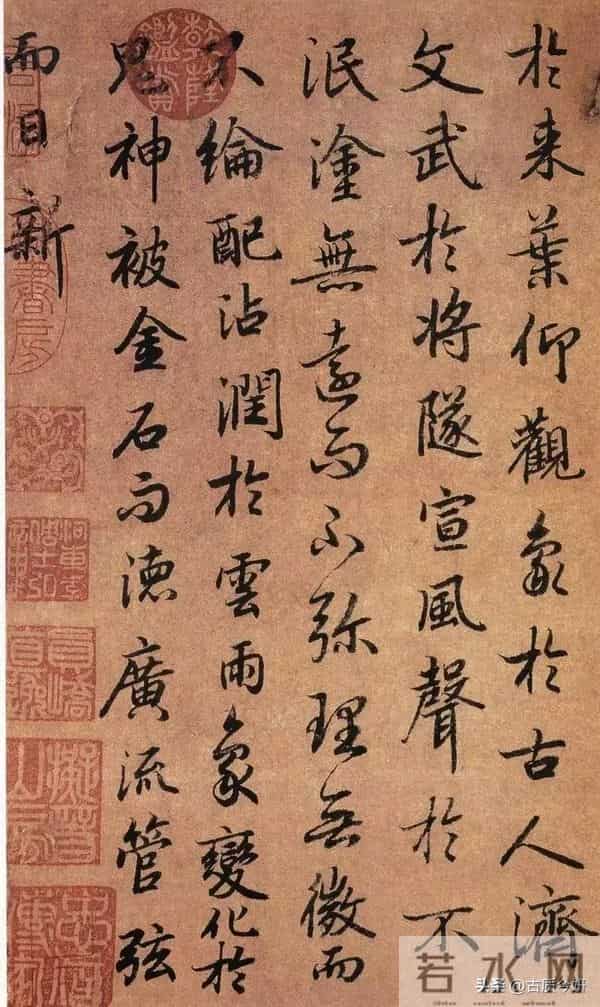 於来葉仰觀象於古人濟
文武於将隊宣風聲於不
泯塗無遠而不弥理无微而
不綸配沾潤於雲雨象變化於
鬼神被金石而徳廣流管弦
而日新
乾隆鑒賞
若水网
头条 @古质今妍